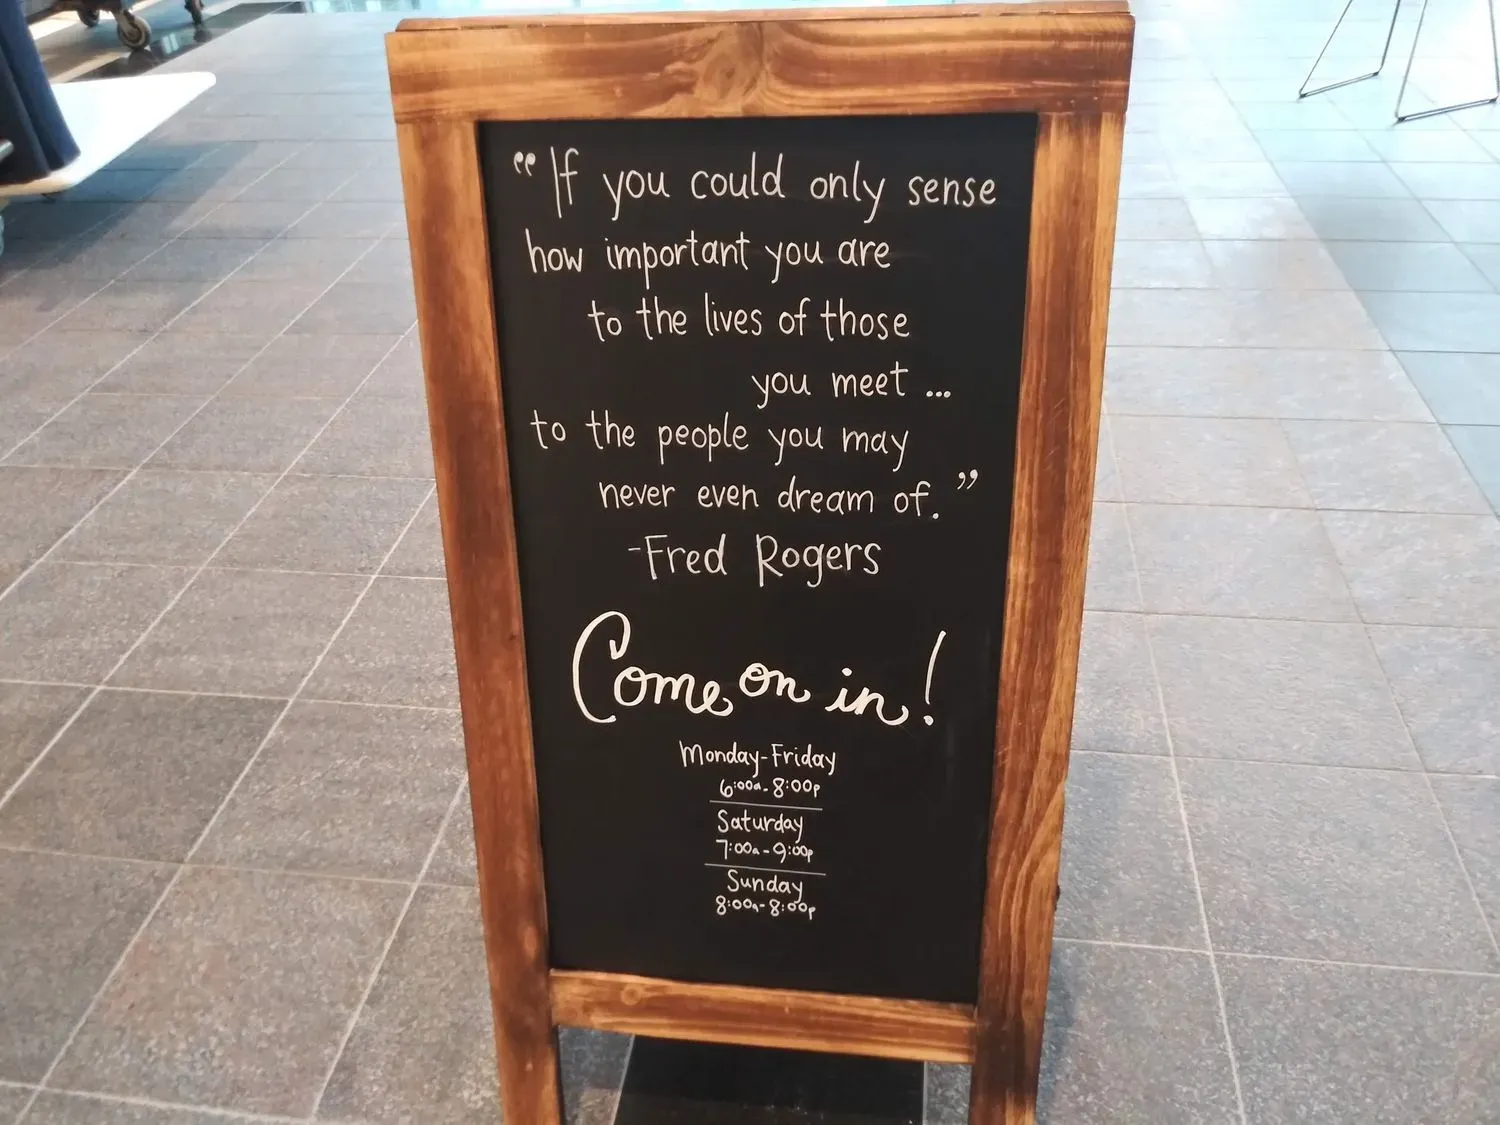 “If you could only sense
how important you are
to the lives of those
you meet ...
to the people you may
never even dream of.”
-Fred Rogers
Come on in!
Monday-Friday
6:00a-8:00p
Saturday
7:00a-9:00p
Sunday
8:00a-8:00p